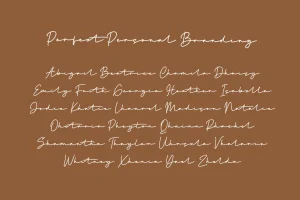 Perfect Personal Branding
Abigail Beatrice Chamila Dhaizy
Emily Faith Georgia Heather Isabella
Jodie Khatie Madison Natalie
Oktavia Pheyton Qhaina Rhachel
Shamantha Thaylor Uhrsela Vhalarie
Whitney Xhenia Zhelda